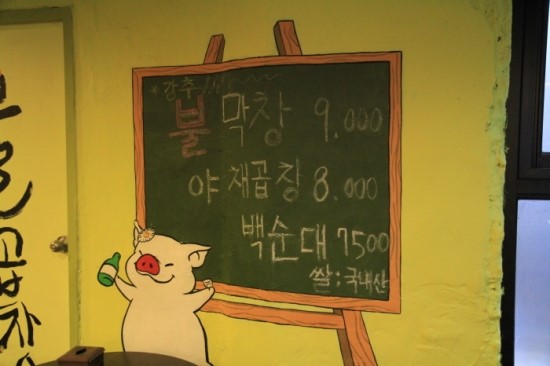 *강추!!!
불막창 9.000
야채곱창 8.000
백순대 7500
쌀:국내산